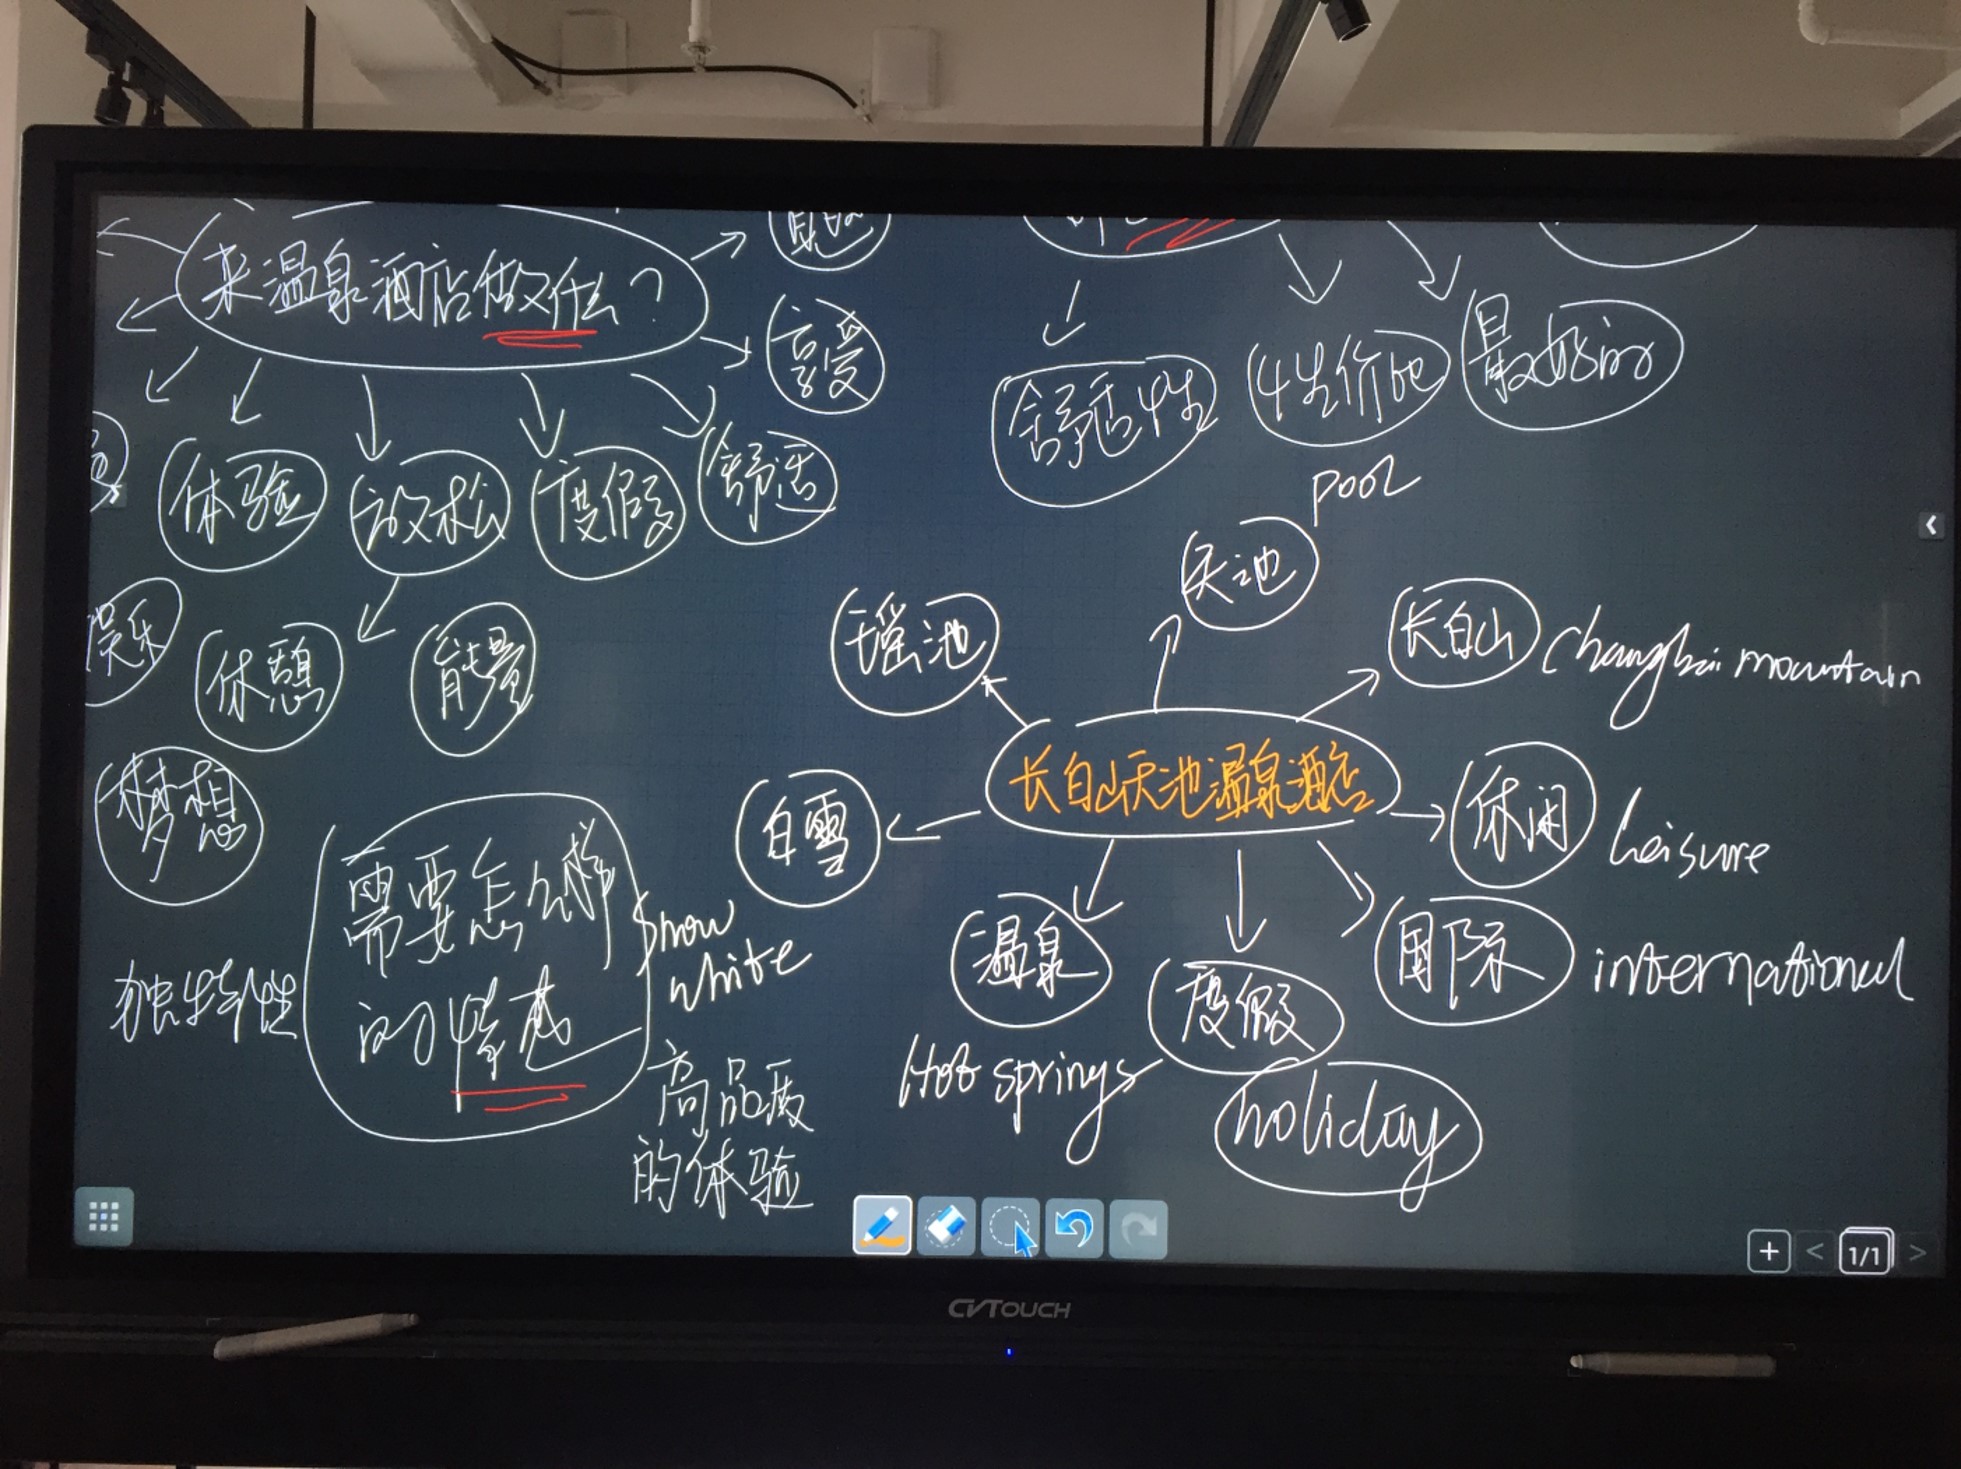 来温泉酒店做什么?
享受
舒适
度假
放松
体验
娱乐
休憩
能量
梦想
需要怎么样
的情感
独特性
高品质
的体验
舒适性
性价比
最好的
pool
天池
瑶池
长白山
Changbai mountain
长白山天池温泉酒店
白雪
Snow
white
休闲
Leisure
温泉
Hot springs
度假
holiday
国际
international
1/1
CVTOUCH